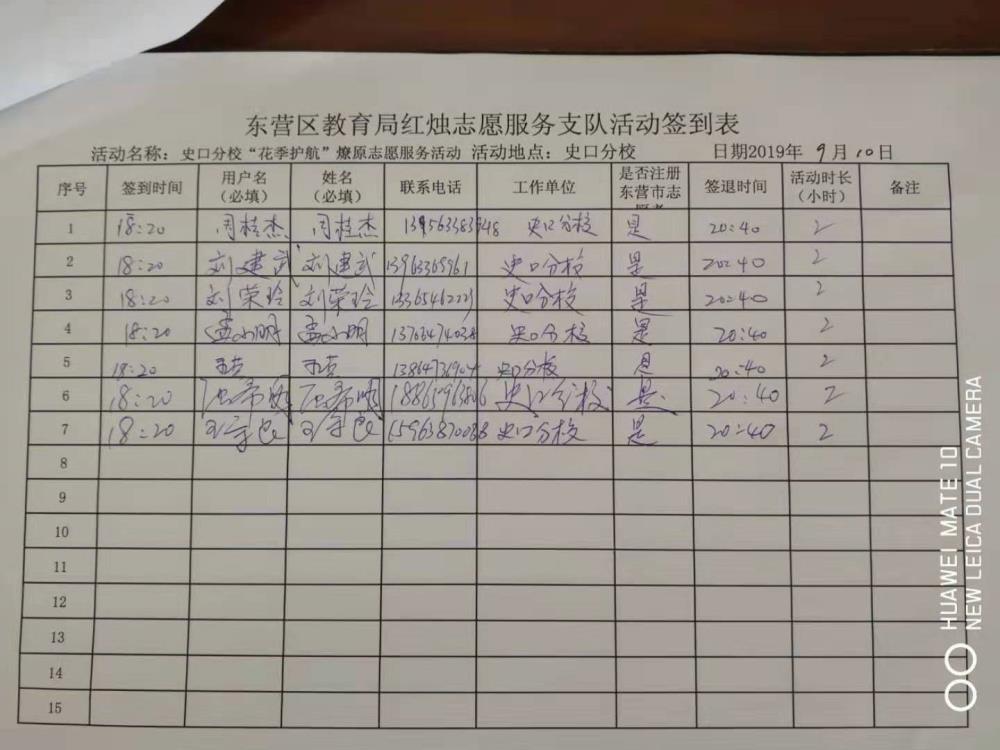 东营区教育局红烛志愿服务支队活动签到表
活动名称：史口分校“花季护航”燎原志愿服务活动 活动地点：史口分校 日期2019年 9月10日
序号 签到时间 用户名（必填） 姓名（必填） 联系电话 工作单位 是否注册东营市志愿者 签退时间 活动时长（小时） 备注
1 18:20 周桂杰 周桂杰 史口分校 是 20:40 2
2 18:20 刘建武 刘建武 13963365961 史口分校 是 20:40 2
3 18:20 刘荣玲 刘荣玲 史口分校 是 20:40 2
4 18:20 孟小明 孟小明 史口分校 是 20:40 2
5 18:20 13864736904 史口分校 是 20:40 2
6 18:20 史口分校 是 20:40 2
7 18:20 王守良 王守良 史口分校 是 20:40 2
8
9
10
11
12
13
14
15
HUAWEI MATE 10
NEW LEICA DUAL CAMERA